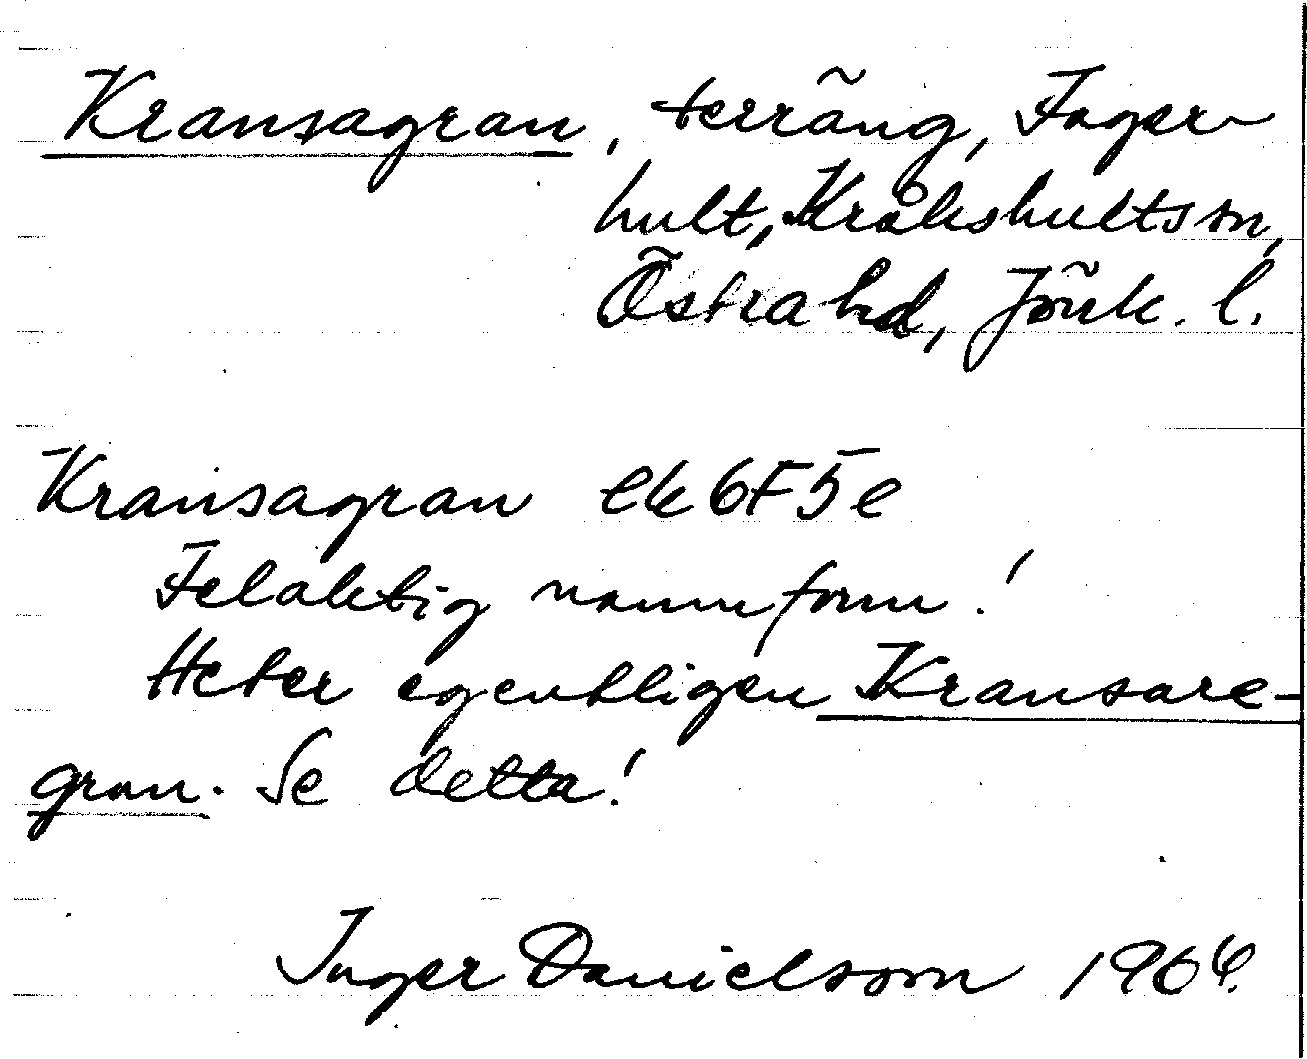 Kransagran, terräng, Fager-
hult, Kråkshults sn,
Östra hd, Jönk. l.
Kransagran ek 6F5e
Felaktig namnform!
Heter egentligen Kransare-
gran. Se detta!
Inger Danielsson 1964.